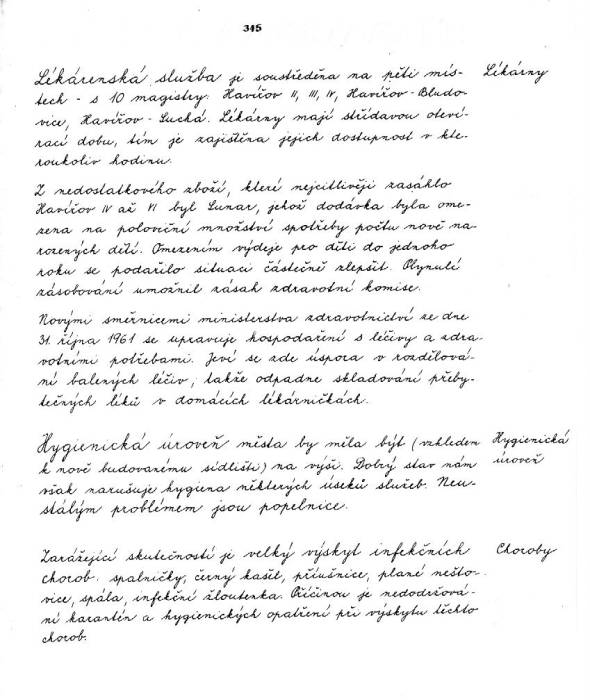 345
Lékárenská služba je soustředěna na pěti mís- Lékárny
tech - s 10 magistry: Havířov II, III, IV, Havířov-Bludo-
vice, Havířov-Suchá. Lékárny mají střídavou oteví-
rací dobu, tím je zajištěna jejich dostupnost v kte-
roukoliv hodinu.
Z nedostatkového zboží, které nejcitlivěji zasáhlo
Havířov IV až VI byl Sunar, jehož dodávka byla ome-
zena na poloviční množství spotřeby počtu nově na-
rozených dětí. Omezením výdeje pro děti do jednoho
roku se podařilo situaci částečně zlepšit. Plynulé
zásobování umožnil zásah zdravotní komise.
Novými směrnicemi ministerstva zdravotnictví ze dne
31. října 1961 se upravuje hospodaření s léčivy a zdra-
votními potřebami. Jeví se zde úspora v rozdělová-
ní balených léčiv, takže odpadne skladování přeby-
tečných léků v domácích lékárničkách.
Hygienická úroveň města by měla být (vzhledem Hygienická
k nově budovanému sídlišti) na výši. Dobrý stav nám úroveň
však narušuje hygiena některých úseků služeb. Neu-
stálým problémem jsou popelnice.
Zarážející skutečností je velký výskyt infekčních Choroby
chorob: spalničky, černý kašel, příušnice, plané nešto-
vice, spála, infekční žloutenka. Příčinou je nedodržová-
ní karantén a hygienických opatření při výskytu těchto
chorob.